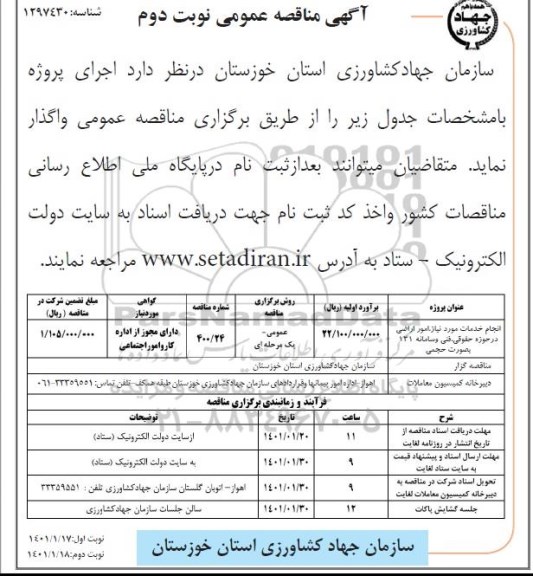 شناسه: ۱۲۹۷۴۳۰
آگهی مناقصه عمومی نوبت دوم
جهاد کشاورزی
سازمان جهادکشاورزی استان خوزستان درنظر دارد اجرای پروژه
بامشخصات جدول زیر را از طریق برگزاری مناقصه عمومی واگذار
نماید. متقاضیان میتوانند بعدازثبت نام درپایگاه ملی اطلاع رسانی
مناقصات کشور واخذ کد ثبت نام جهت دریافت اسناد به سایت دولت
الکترونیک – ستاد به آدرس www.setadiran.ir مراجعه نمایند.
عنوان پروژه | برآورد اولیه (ریال) | روش برگزاری مناقصه | شماره مناقصه | گواهی موردنیاز | مبلغ تضمین شرکت در مناقصه (ریال)
انجام خدمات مورد نیاز،امور اراضی درحوزه حقوقی،فنی وسامانه ۱۳۱ بصورت حجمی | ۲۲/۱۰۰/۰۰۰/۰۰۰ | عمومی- یک مرحله ای | ۴۰۰/۲۴ | دارای مجوز از اداره کارواموراجتماعی | ۱/۱۰۵/۰۰۰/۰۰۰
مناقصه گزار | سازمان جهادکشاورزی استان خوزستان
دبیرخانه کمیسیون معاملات | اهواز-اداره امور پیمانها وقراردادهای سازمان جهادکشاورزی خوزستان طبقه همکف- تلفن تماس: ۳۳۳۵۹۵۵۱-۰۶۱
فرآیند و زمانبندی برگزاری مناقصه
شرح | ساعت | تاریخ | توضیحات
مهلت دریافت اسناد مناقصه از تاریخ انتشار در روزنامه لغایت | ۱۱ | ۱۴۰۱/۰۱/۲۰ | ازسایت دولت الکترونیک (ستاد)
مهلت ارسال اسناد و پیشنهاد قیمت به سایت ستاد لغایت | ۹ | ۱۴۰۱/۰۱/۳۰ | به سایت دولت الکترونیک (ستاد)
تحویل اسناد شرکت در مناقصه به دبیرخانه کمیسیون معاملات لغایت | ۹ | ۱۴۰۱/۰۱/۳۰ | اهواز- اتوبان گلستان سازمان جهادکشاورزی تلفن : ۳۳۳۵۹۵۵۱
جلسه گشایش پاکات | ۱۲ | ۱۴۰۱/۰۱/۳۰ | سالن جلسات سازمان جهادکشاورزی
نوبت اول: ۱۴۰۱/۱/۱۷
نوبت دوم: ۱۴۰۱/۱/۱۸
سازمان جهاد کشاورزی استان خوزستان